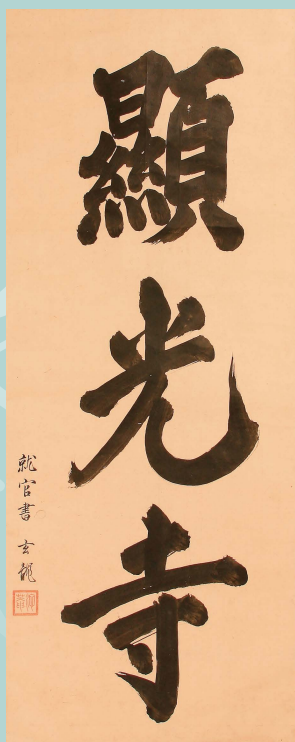 顯光寺
就官書 玄龍